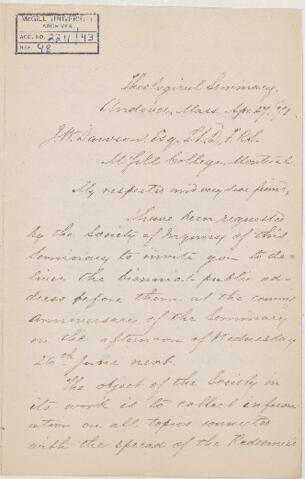 McGILL UNIVERSITY
ARCHIVES
ACC. NO. 2211/43
REF. 48
Theological Seminary,
Andover, Mass. Apr. 27, '78.
J. W. Dawson, Esq. LL.D., F.R.S.
McGill College, Montreal.
My respected and very dear friend,
I have been requested
by the Society of Inquiry of this
Seminary to invite you to de-
liver the biennial public ad-
dress before them at the coming
Anniversary of the Seminary
on the afternoon of Wednesday
26th June next.
The object of the Society in
its work is to collect inform-
ation on all topics connected
with the spread of the Redeemer's